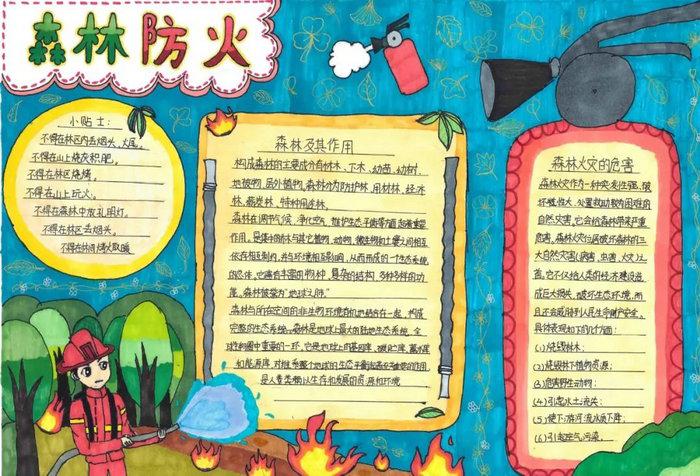 森林防火
小贴士：
不得在林区内丢烟头、火尾。
不得在山上烧灰积肥。
不得在林区烧烤。
不得在山上玩火。
不得在森林中放孔明灯。
不得在林区丢烟头。
不得在林间烤火取暖
森林及其作用
构成森林的主要成分有林木、下木、幼苗、幼树、
地被物、层外植物。森林分为防护林、用材林、经济
林、薪炭林、特种用途林。
森林在调节气候、净化空气、维护生态平衡等方面起着重要
作用。是集中的树木与其它植物、动物、微生物和土壤之间相互
依存相互制约，并与环境相互影响，从而形成的一个生态系统
的总体。它具有丰富的物种，复杂的结构，多种多样的功
能。森林被誉为"地球之肺"。
森林与所在空间的非生物环境有机地结合在一起，构成
完整的生态系统。森林是地球上最大的陆地生态系统，全
球生物圈中重要的一环。它是地球上的基因库、碳贮库、蓄水库
和能源库，对维系整个地球的生态平衡起着至关重要的作用，
是人类赖以生存和发展的资源和环境
森林火灾的危害
森林火灾作为一种突发性强、破
坏性大、处置救助较为困难的
自然灾害，它会给森林带来严重
危害。森林火灾位居破坏森林的三
大自然灾害(病害、虫害、火灾)之
首。它不仅给人类的经济建设造
成巨大损失，破坏生态环境，而
且还会威胁到人民生命财产安全。
具体表现如下的几方面：
(1)烧毁林木；
(2)烧毁林下植物资源；
(3)危害野生动物；
(4)引起水土流失；
(5)使下游河流水质下降；
(6)引起空气污染。